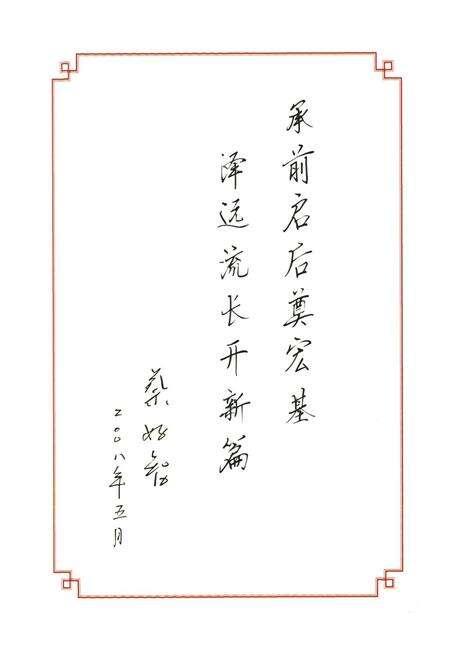 承前启后奠宏基
泽远流长开新篇
蔡
二〇〇八年五月